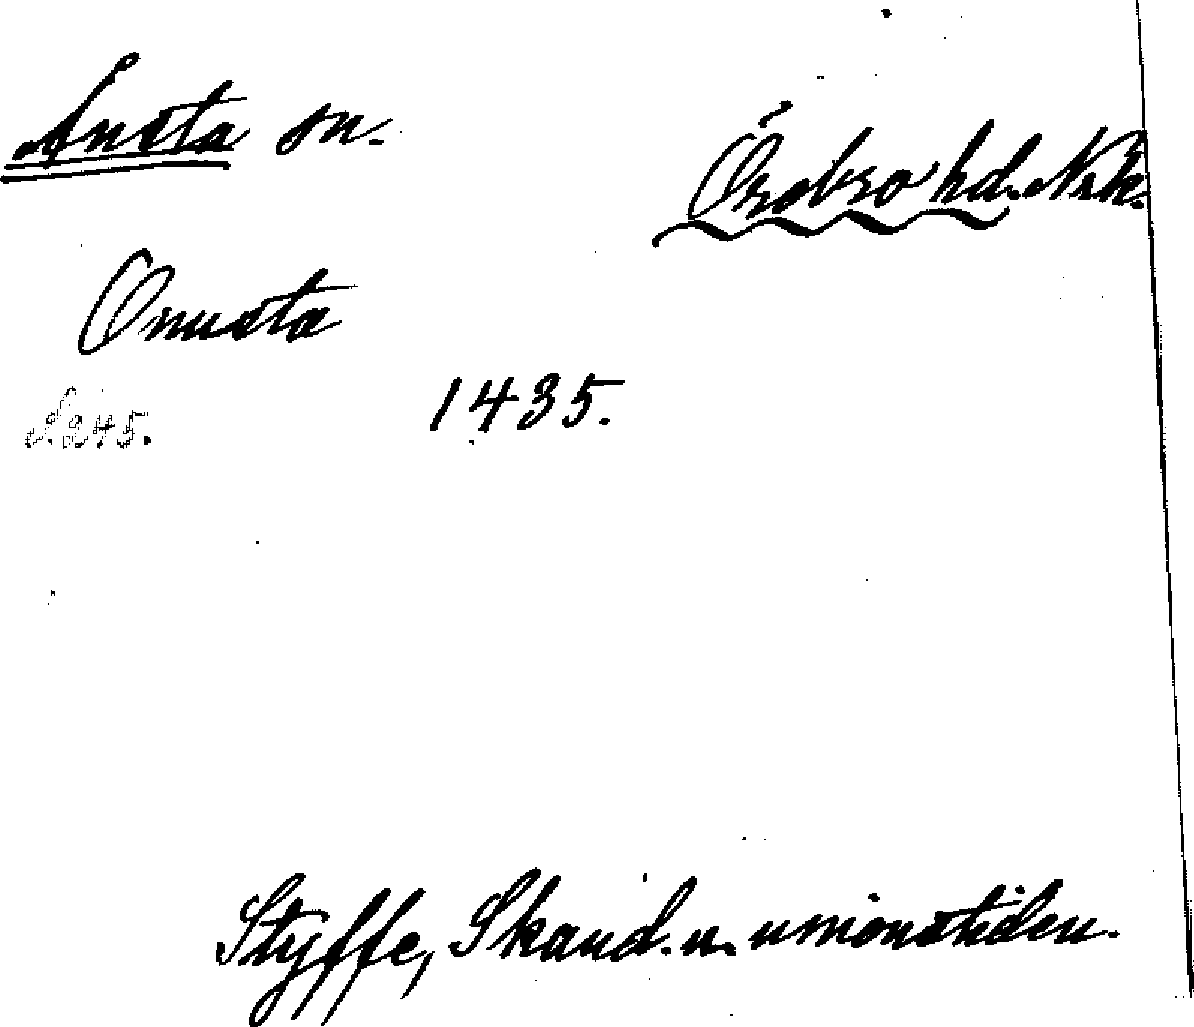 Ånsta sn.
Örebro hd. Nrk.
Onusta
1435.
S. 245.
Styffe, Skand. u. unionstiden.